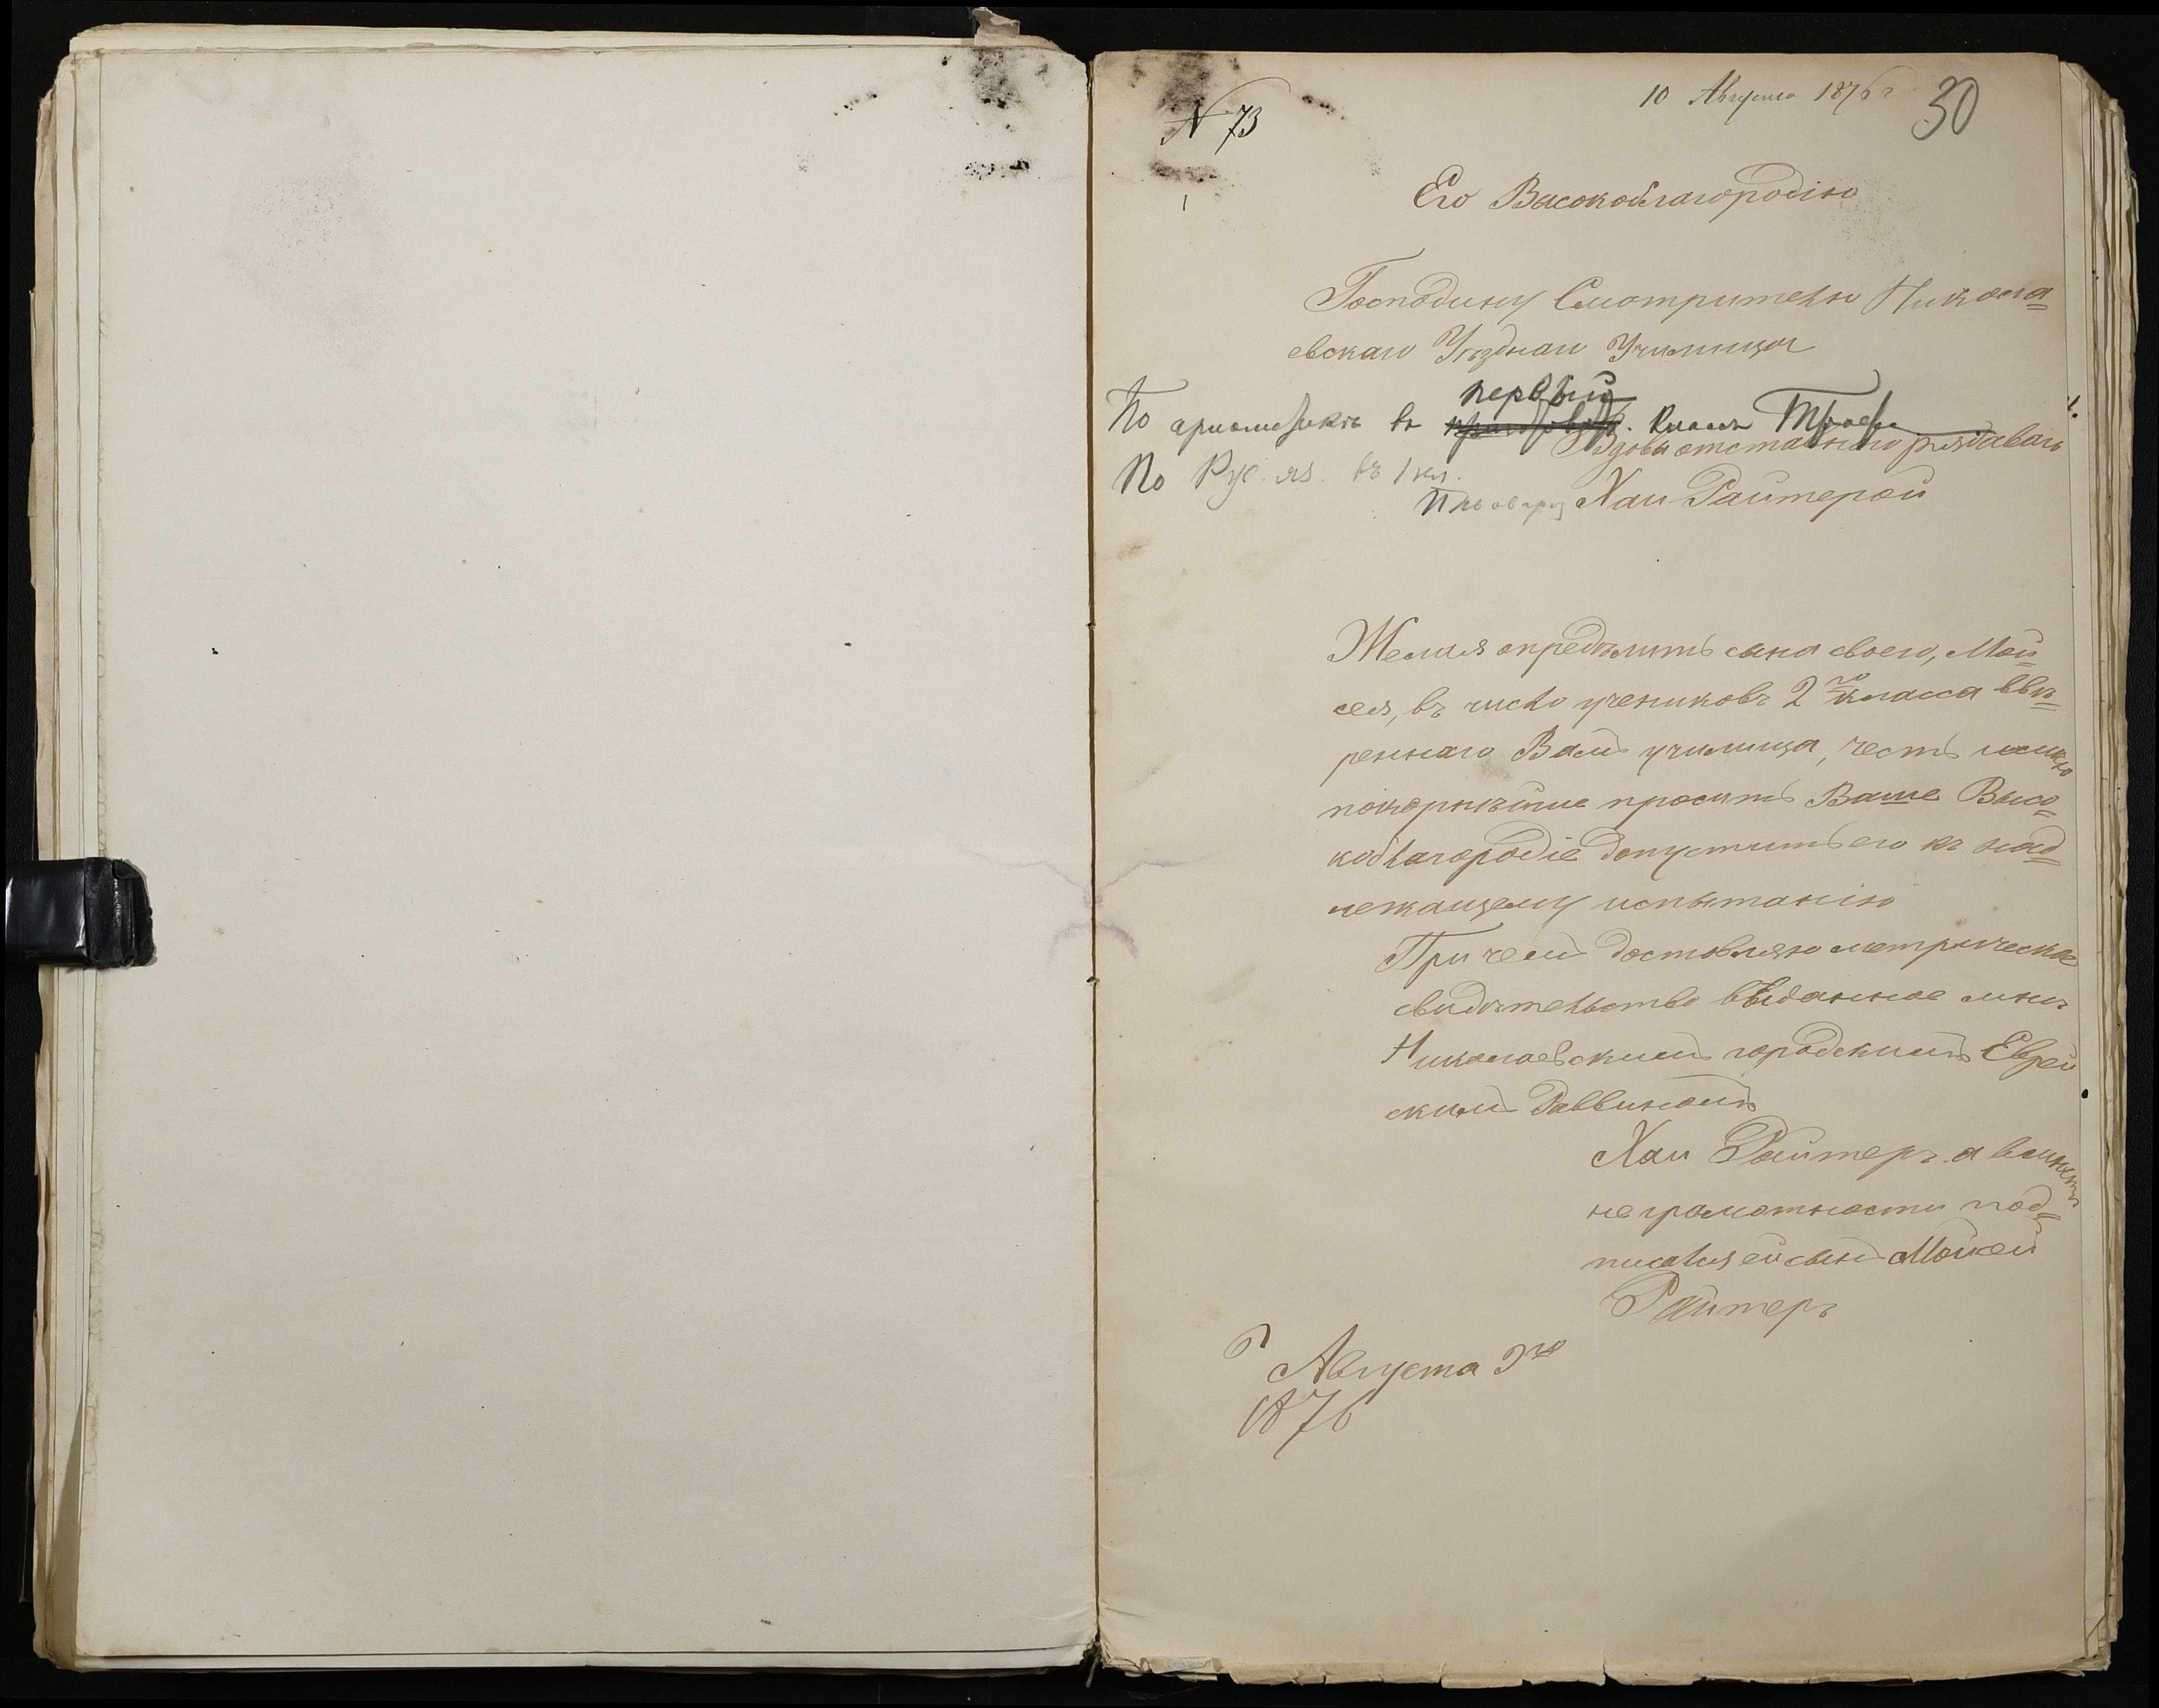 10 Августа 1876 г
30
N 73
Его Высокоблагородію
Господину Смотрителю Никола=
евскаго Уѣзднаго Училища
первый
По ариѳметикѣ въ классъ
Вдовы отставнаго рядоваго
По Рус. яз. въ 1 кл.
Хаи Райтерой
Желая опредѣлить сына своего, Мой=
сея, въ число учениковъ 2го класса ввѣ=
реннаго Вамъ училища, честь имѣю
покорнѣйше просить Ваше Высо=
коблагородіе допустить его къ над=
лежащему испытанію
При чемъ доставляю метрическое
свидѣтельство выданное мнѣ
Николаевскимъ городскимъ Еврей
скимъ Раввиномъ
Хаи Райтеръ а
неграмотности под=
писался ей сынъ Мойсей
Райтеръ
Августа 9го
1876